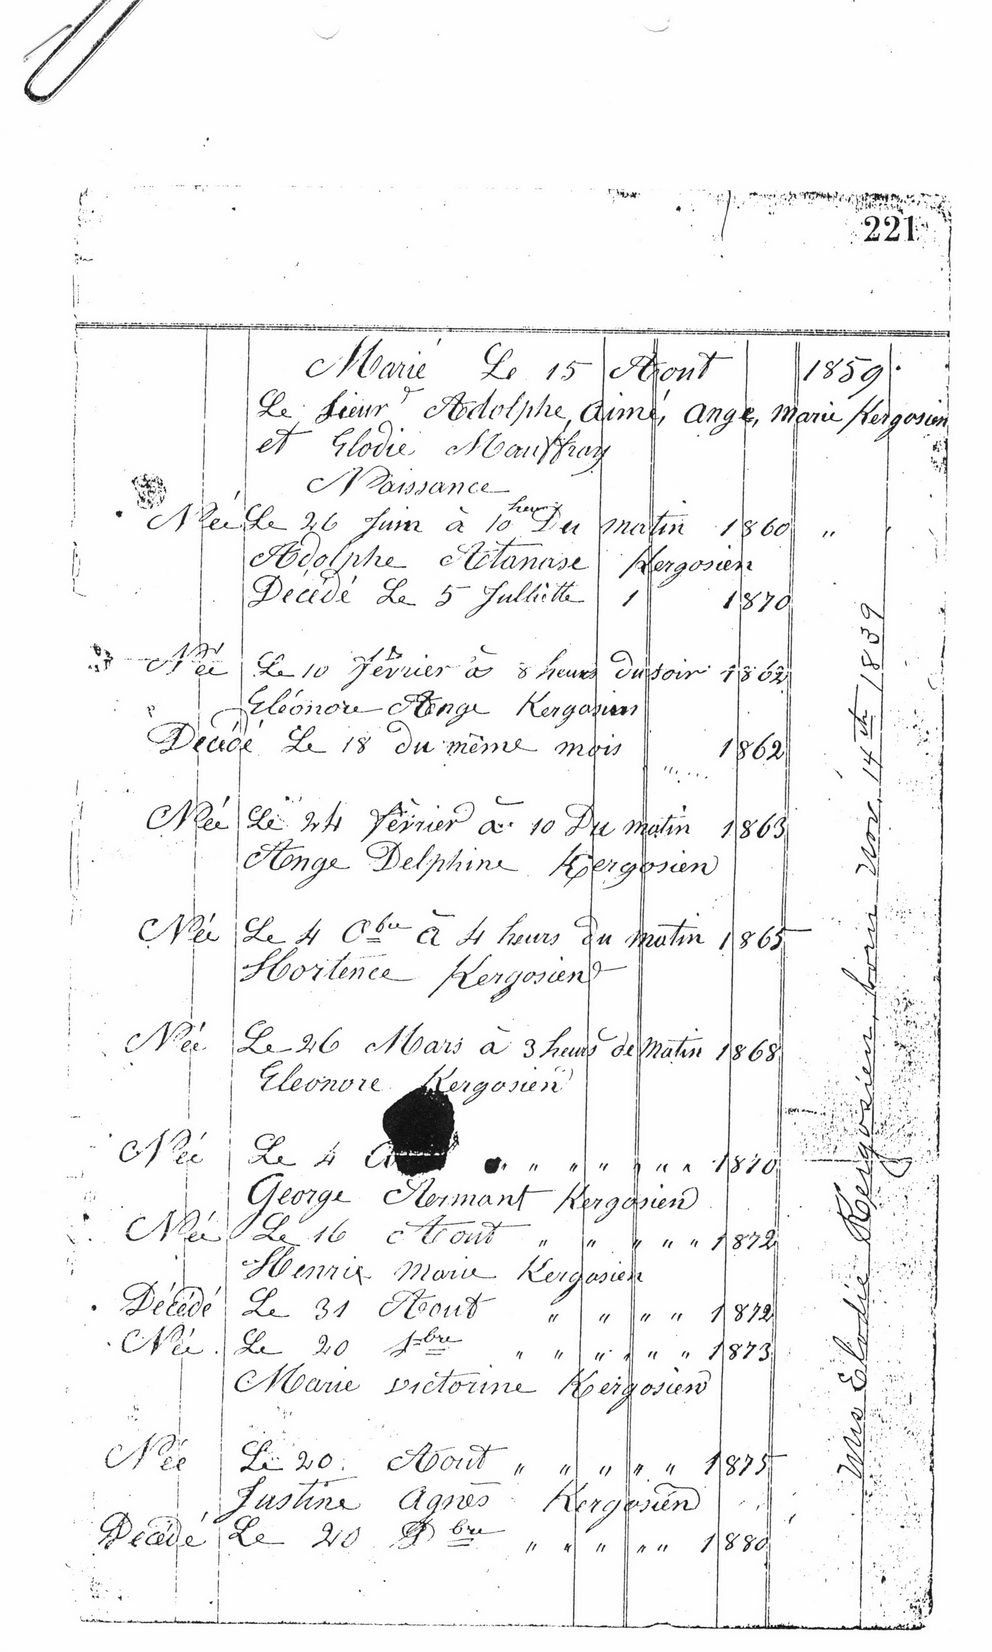 221
Marié Le 15 Aout 1859.
Le Sieur Adolphe, Aimé, Ange, Marie Kergosien
et Elodie Mauffray
Naissance
Née Le 26 Juin à 10 heurs Du matin 1860 "
Adolphe Atanase Kergosien
Décédé Le 5 Julliette 1 1870
Née Le 10 Février à 8 heurs du soir 1862
Eléonore Ange Kergosien
Décédé Le 18 du même mois 1862
Née Le 24 Février à 10 Du matin 1863
Ange Delphine Kergosien
Née Le 4 Obre à 4 heurs du matin 1865
Hortence Kergosien
Née Le 26 Mars à 3 heurs de Matin 1868
Eleonore Kergosien
Née Le 4 " " " " " " 1870
George Armant Kergosien
Née Le 16 Aout " " " " " 1872
Henrie Marie Kergosien
Décédé Le 31 Aout " " " " 1872
Née Le 20 bre " " " " " " 1873
Marie Victorine Kergosien
Née Le 20. Aout " " " " " 1875
Justine Agnes Kergosien
Décédé Le 20 bre " " " " " 1880
Mrs Elodie Kergosien, born Nov. 14th 1839